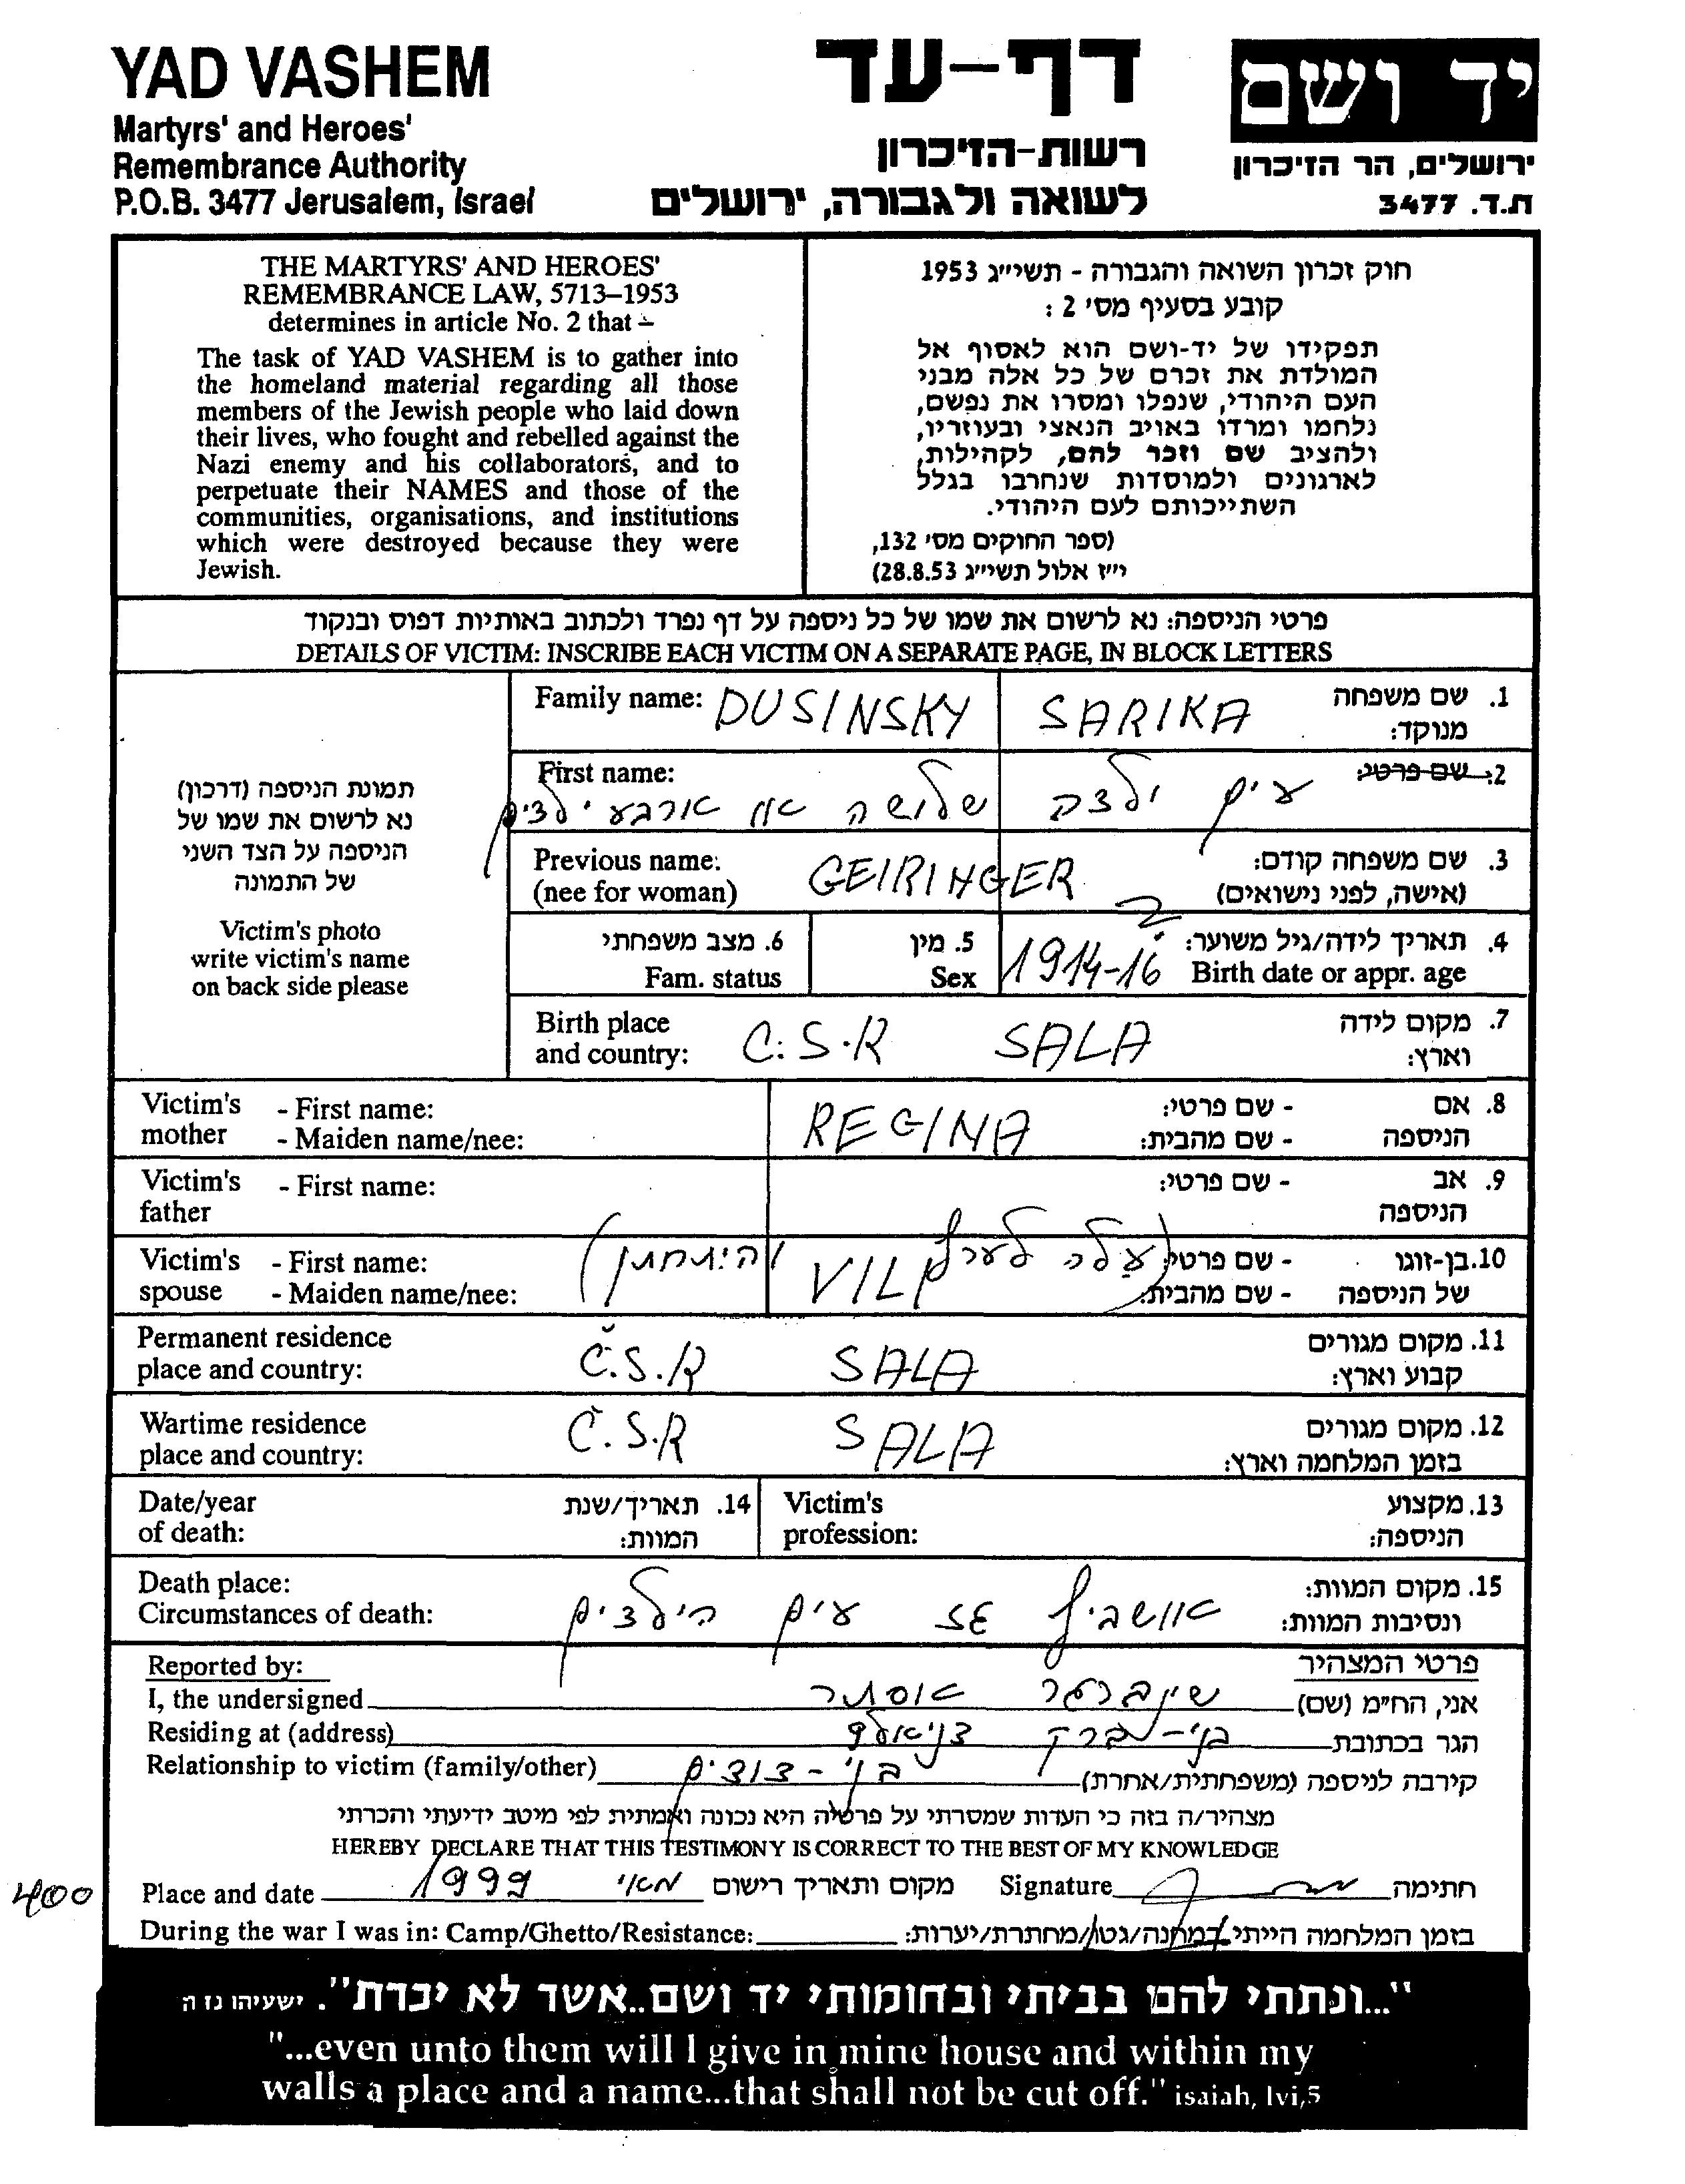 YAD VASHEM
Martyrs' and Heroes'
Remembrance Authority
P.O.B. 3477 Jerusalem, Israel
דף-עד
רשות-הזיכרון
לשואה ולגבורה, ירושלים
יד ושם
ירושלים, הר הזיכרון
ת.ד. 3477
THE MARTYRS' AND HEROES'
REMEMBRANCE LAW, 5713–1953
determines in article No. 2 that –
The task of YAD VASHEM is to gather into
the homeland material regarding all those
members of the Jewish people who laid down
their lives, who fought and rebelled against the
Nazi enemy and his collaborators, and to
perpetuate their NAMES and those of the
communities, organisations, and institutions
which were destroyed because they were
Jewish.
חוק זכרון השואה והגבורה - תשי״ג 1953
קובע בסעיף מס׳ 2 :
תפקידו של יד-ושם הוא לאסוף אל
המולדת את זכרם של כל אלה מבני
העם היהודי, שנפלו ומסרו את נפשם,
נלחמו ומרדו באויב הנאצי ובעוזריו,
ולהציב שם וזכר להם, לקהילות,
לארגונים ולמוסדות שנחרבו בגלל
השתייכותם לעם היהודי.
(ספר החוקים מס׳ 132,
י״ז אלול תשי״ג 28.8.53)
פרטי הניספה: נא לרשום את שמו של כל ניספה על דף נפרד ולכתוב באותיות דפוס ובנקוד
DETAILS OF VICTIM: INSCRIBE EACH VICTIM ON A SEPARATE PAGE, IN BLOCK LETTERS
תמונת הניספה (דרכון)
נא לרשום את שמו של
הניספה על הצד השני
של התמונה
Victim's photo
write victim's name
on back side please
Family name: DUSINSKY SARIKA 1. שם משפחה
מנוקד:
First name: 2. שם פרטי:
עים ילצה שלושה או ארבע ילצים
Previous name: GEIRINGER 3. שם משפחה קודם:
(nee for woman) (אישה, לפני נישואים)
6. מצב משפחתי 5. מין 4. תאריך לידה/גיל משוער:
Fam. status Sex 1914-16 ? Birth date or appr. age
Birth place C.S.R SALA 7. מקום לידה
and country: וארץ:
Victim's - First name: REGINA - שם פרטי: 8. אם
mother - Maiden name/nee: - שם מהבית: הניספה
Victim's - First name: - שם פרטי: 9. אב
father הניספה
Victim's - First name: - שם פרטי 10. בן-זוגו
spouse - Maiden name/nee: - שם מהבית: של הניספה
Permanent residence Č.S.R SALA 11. מקום מגורים
place and country: קבוע וארץ:
Wartime residence Č.S.R SALA 12. מקום מגורים
place and country: בזמן המלחמה וארץ:
Date/year 14. תאריך/שנת Victim's 13. מקצוע
of death: המוות: profession: הניספה:
Death place: 15. מקום המוות:
Circumstances of death: אושביץ עים הילצים ונסיבות המוות:
Reported by: פרטי המצהיר
I, the undersigned אסתר אני, הח״מ (שם)
Residing at (address) בני-ברק הגר בכתובת
Relationship to victim (family/other) בני-צוצים קירבה לניספה (משפחתית/אחרת)
מצהיר/ה בזה כי העדות שמסרתי על פרטיה היא נכונה ואמתית לפי מיטב ידיעתי והכרתי
HEREBY DECLARE THAT THIS TESTIMONY IS CORRECT TO THE BEST OF MY KNOWLEDGE
400
Place and date 1999 מאי מקום ותאריך רישום Signature חתימה
During the war I was in: Camp/Ghetto/Resistance: בזמן המלחמה הייתי במחנה/גטו/מחתרת/יערות:
"...ונתתי להם בביתי ובחומותי יד ושם..אשר לא יכרת". ישעיהו נז ה
"...even unto them will I give in mine house and within my
walls a place and a name...that shall not be cut off." isaiah, lvi,5